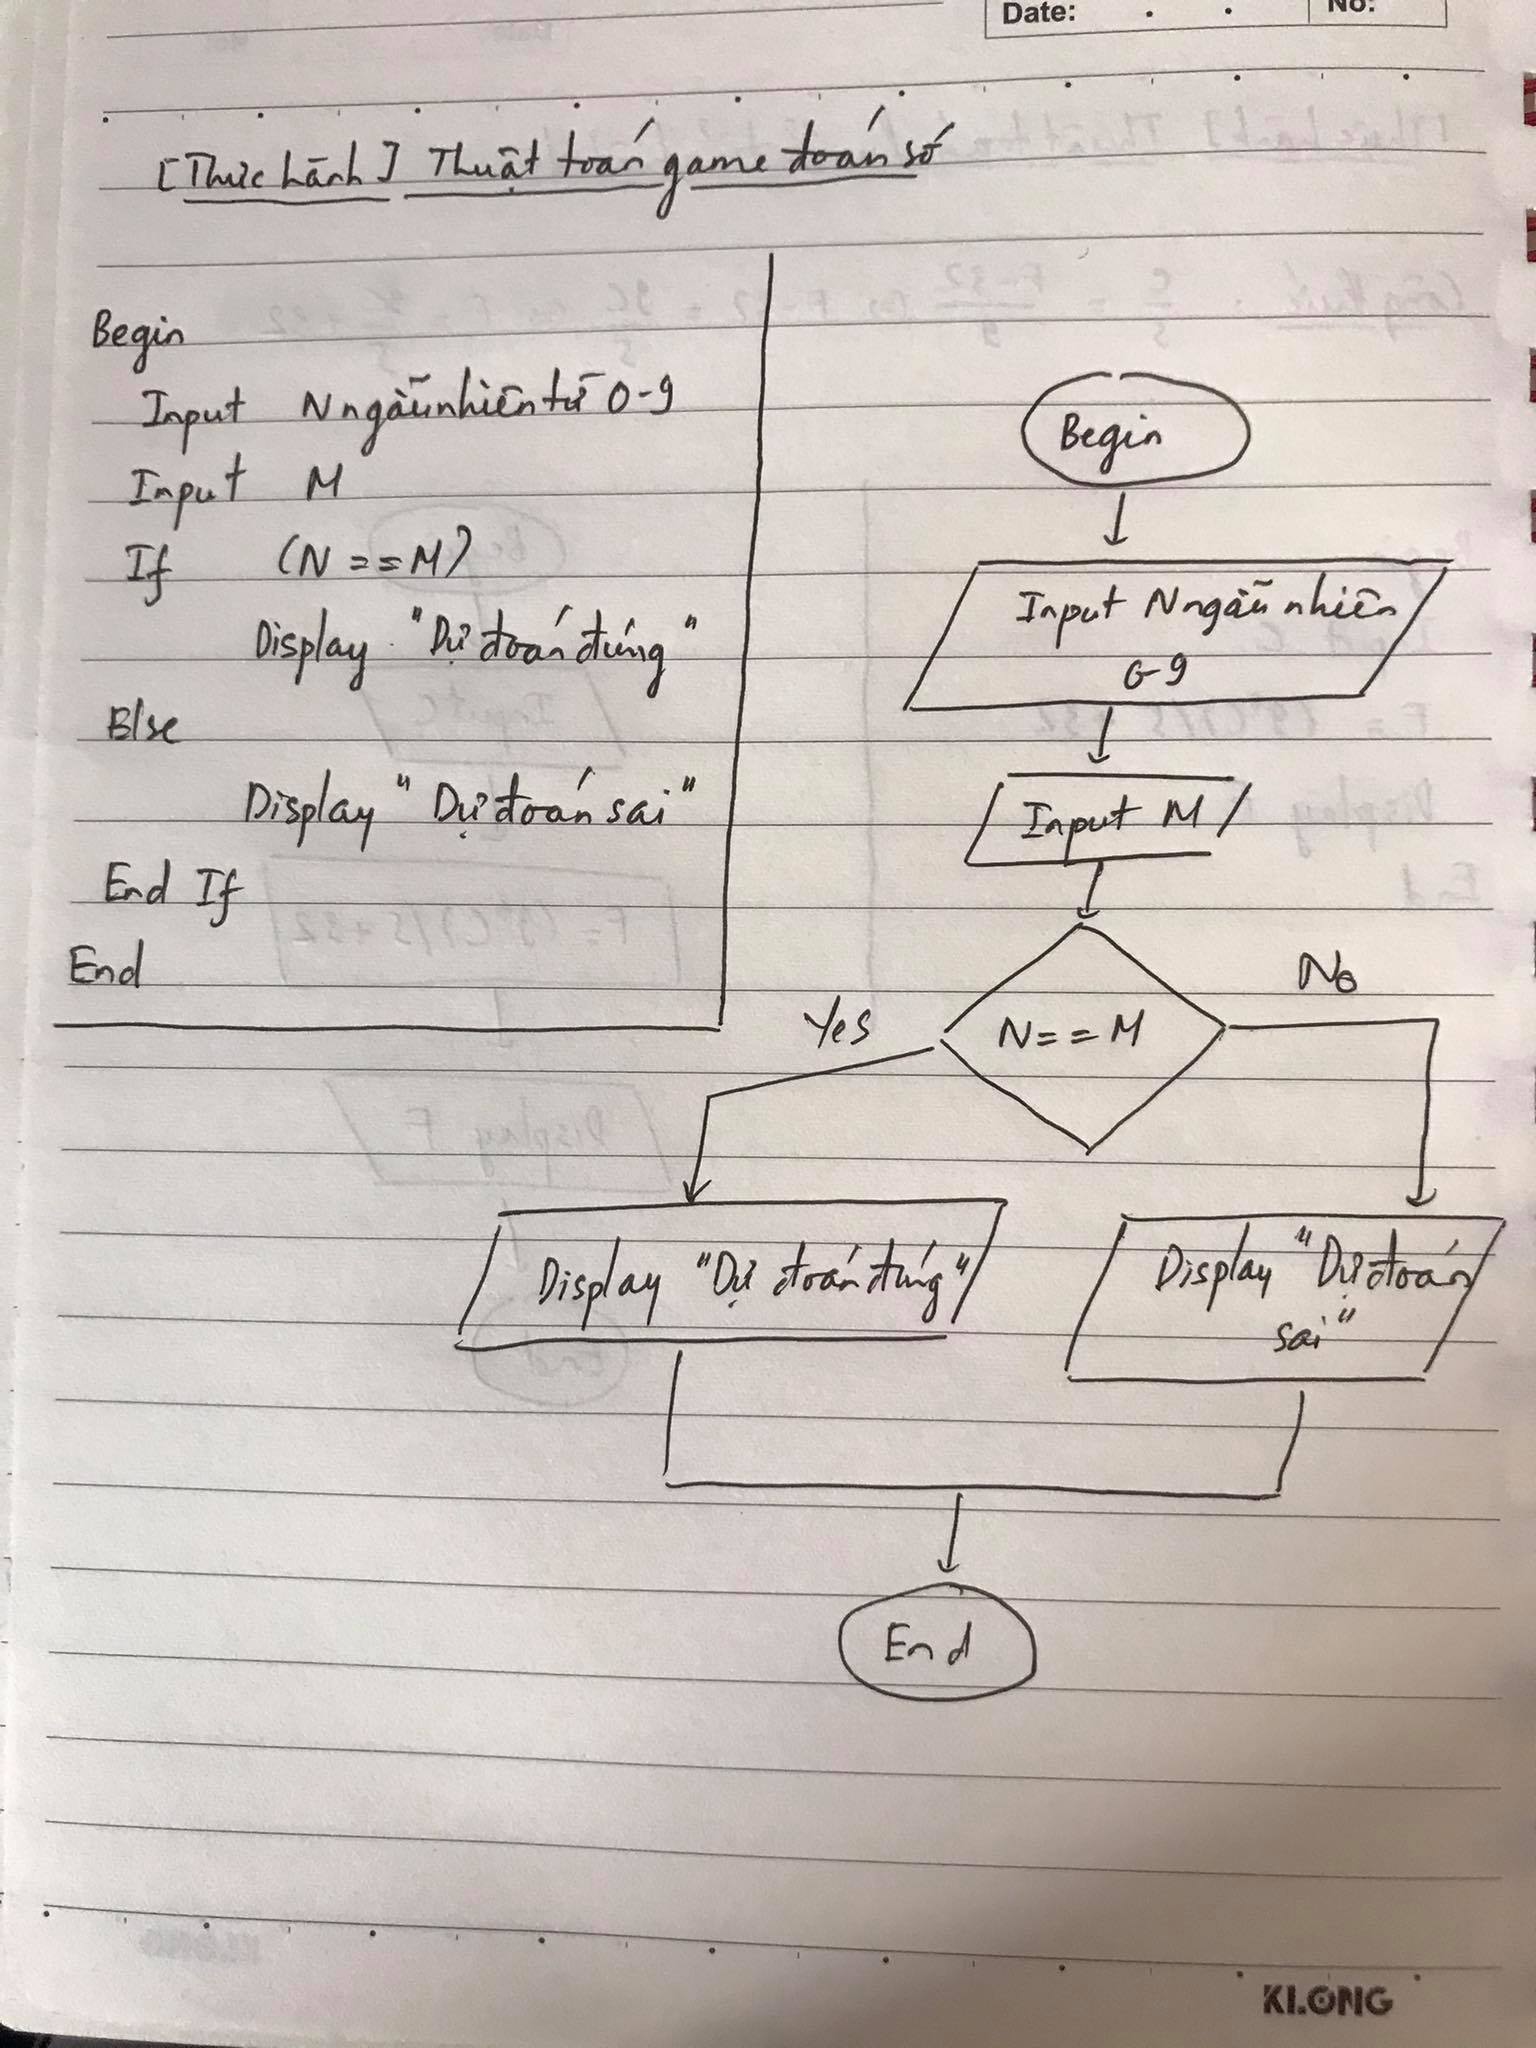 Date: . . No:
[Thực hành] Thuật toán game đoán số
Begin
Input N ngẫu nhiên từ 0-9
Input M
If (N == M)
Display "Dự đoán đúng"
Else
Display "Dự đoán sai"
End If
End
Begin
Input N ngẫu nhiên
0-9
Input M
N == M
Yes
No
Display "Dự đoán đúng"
Display "Dự đoán
sai"
End
KLONG